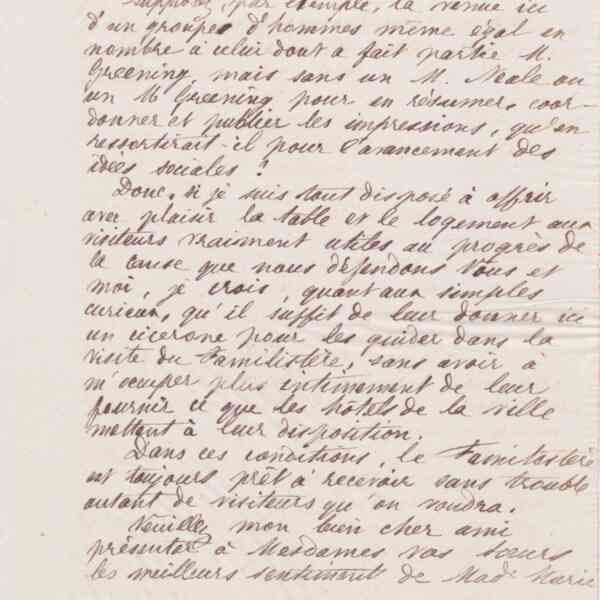 supposez, par exemple, la venue ici
d'un groupe d'hommes même égal en
nombre à celui dont a fait partie M.
Greening, mais sans un M. Neale ou
un M Greening pour en résumer, coor-
donner et publier les impressions, qu'en
ressortirait-il pour l'avancement des
idées sociales ?
Donc, si je suis tout disposé à offrir
avec plaisir la table et le logement aux
visiteurs vraiment utiles au progrès de
la cause que nous défendons Vous et
moi, je crois, quant aux simples
curieux, qu'il suffit de leur donner ici
un cicerone pour les guider dans la
visite du Familistère, sans avoir à
m'occuper plus intimement de leur
fournir ce que les hôtels de la ville
mettent à leur disposition.
Dans ces conditions, le Familistère
est toujours prêt à recevoir sans trouble
autant de visiteurs qu'on voudra.
Veuillez mon bien cher ami
présenter à Mesdames vos sœurs
les meilleurs sentiments de Made Marie